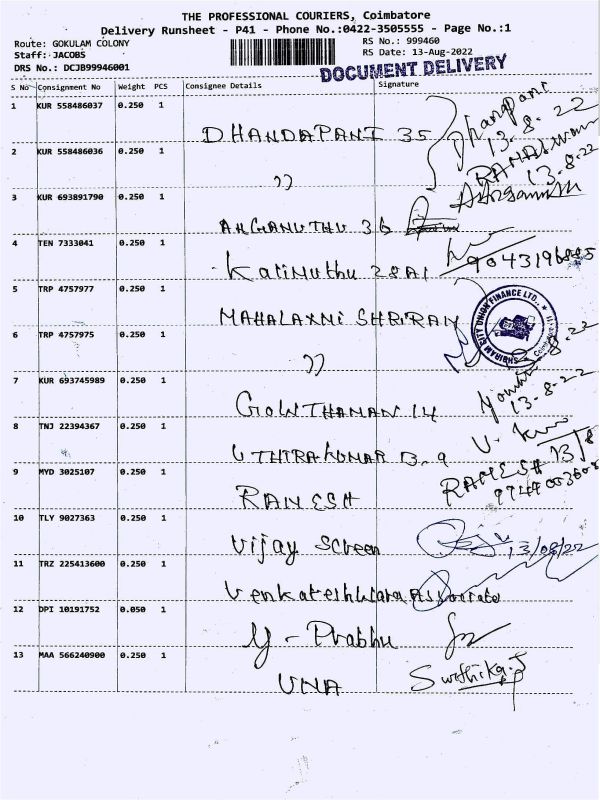 THE PROFESSIONAL COURIERS, Coimbatore
Delivery Runsheet - P41 - Phone No.:0422-3505555 - Page No.:1
Route: GOKULAM COLONY RS No.: 999460
Staff: JACOBS RS Date: 13-Aug-2022
DRS No.: DCJB99946001 DOCUMENT DELIVERY
S No Consignment No Weight PCS Consignee Details Signature
1 KUR 558486037 0.250 1
DHANDAPANI 35 13-8-22
2 KUR 558486036 0.250 1
,, 13-8-22
3 KUR 693891790 0.250 1
36
4 TEN 7333041 0.250 1
Karimuthu 28A1
5 TRP 4757977 0.250 1
MAHALAXMI SHRIRAM SHRIRAM CITY UNION FINANCE LTD.,
6 TRP 4757975 0.250 1
,,
7 KUR 693745989 0.250 1
GOWTHAMAN 14 13-8-22
8 TNJ 22394367 0.250 1
UTHIRAKUMAR B.9
9 MYD 3025107 0.250 1
RAMESH RAMESH
10 TLY 9027363 0.250 1
Vijay Screen 13/08/22
11 TRZ 225413600 0.250 1
Venkateshwara Associate
12 DPI 10191752 0.050 1
M - Prabhu
13 MAA 566240900 0.250 1
UNA Swathika.S